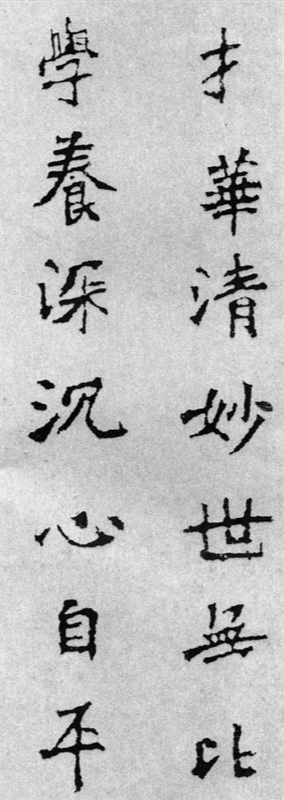 才華清妙世無比
學養深沉心自平